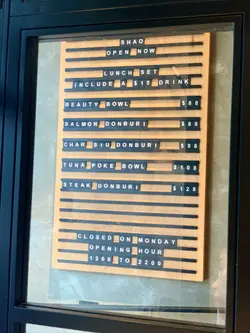 SHAO
OPEN NOW
LUNCH SET
INCLUDE A $15 DRINK
BEAUTY BOWL $88
SALMON DONBURI $88
CHAR SIU DONBURI $98
TUNA POKE BOWL $108
STEAK DONBURI $128
CLOSED ON MONDAY
OPENING HOUR
1200 TO 2200